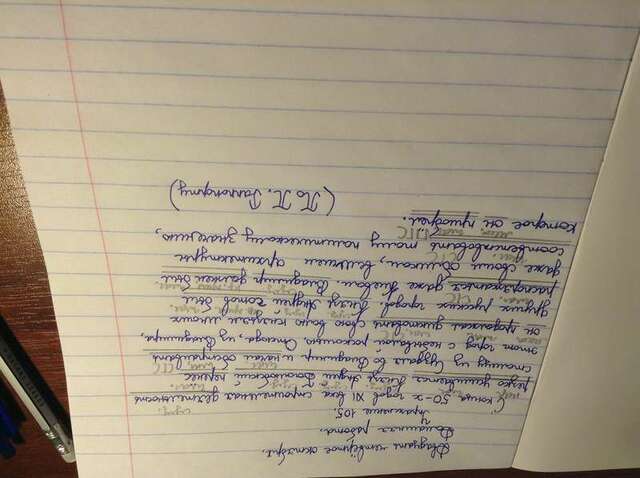 Двадцать четвёртое октября.
Домашняя работа.
Упражнение 105.
сущ.
С конца 50-х годов XII века строительная деятельность
резко усиливается. Князь Андрей Боголюбский перенес
столицу из Суздаля во Владимир и начал обстраивать
этот город с небывалой роскошью. Отсюда, из Владимира,
он продолжал диктовать свою волю князьям многих
других русских городов. Князь Андрей готов был
распоряжаться даже Киевом. Владимир должен был
даже своим обликом, величием архитектуры
соответствовать тому политическому значению,
мест. глаг. ПГС
которое он приобрёл.
(По П. Раппопорту)